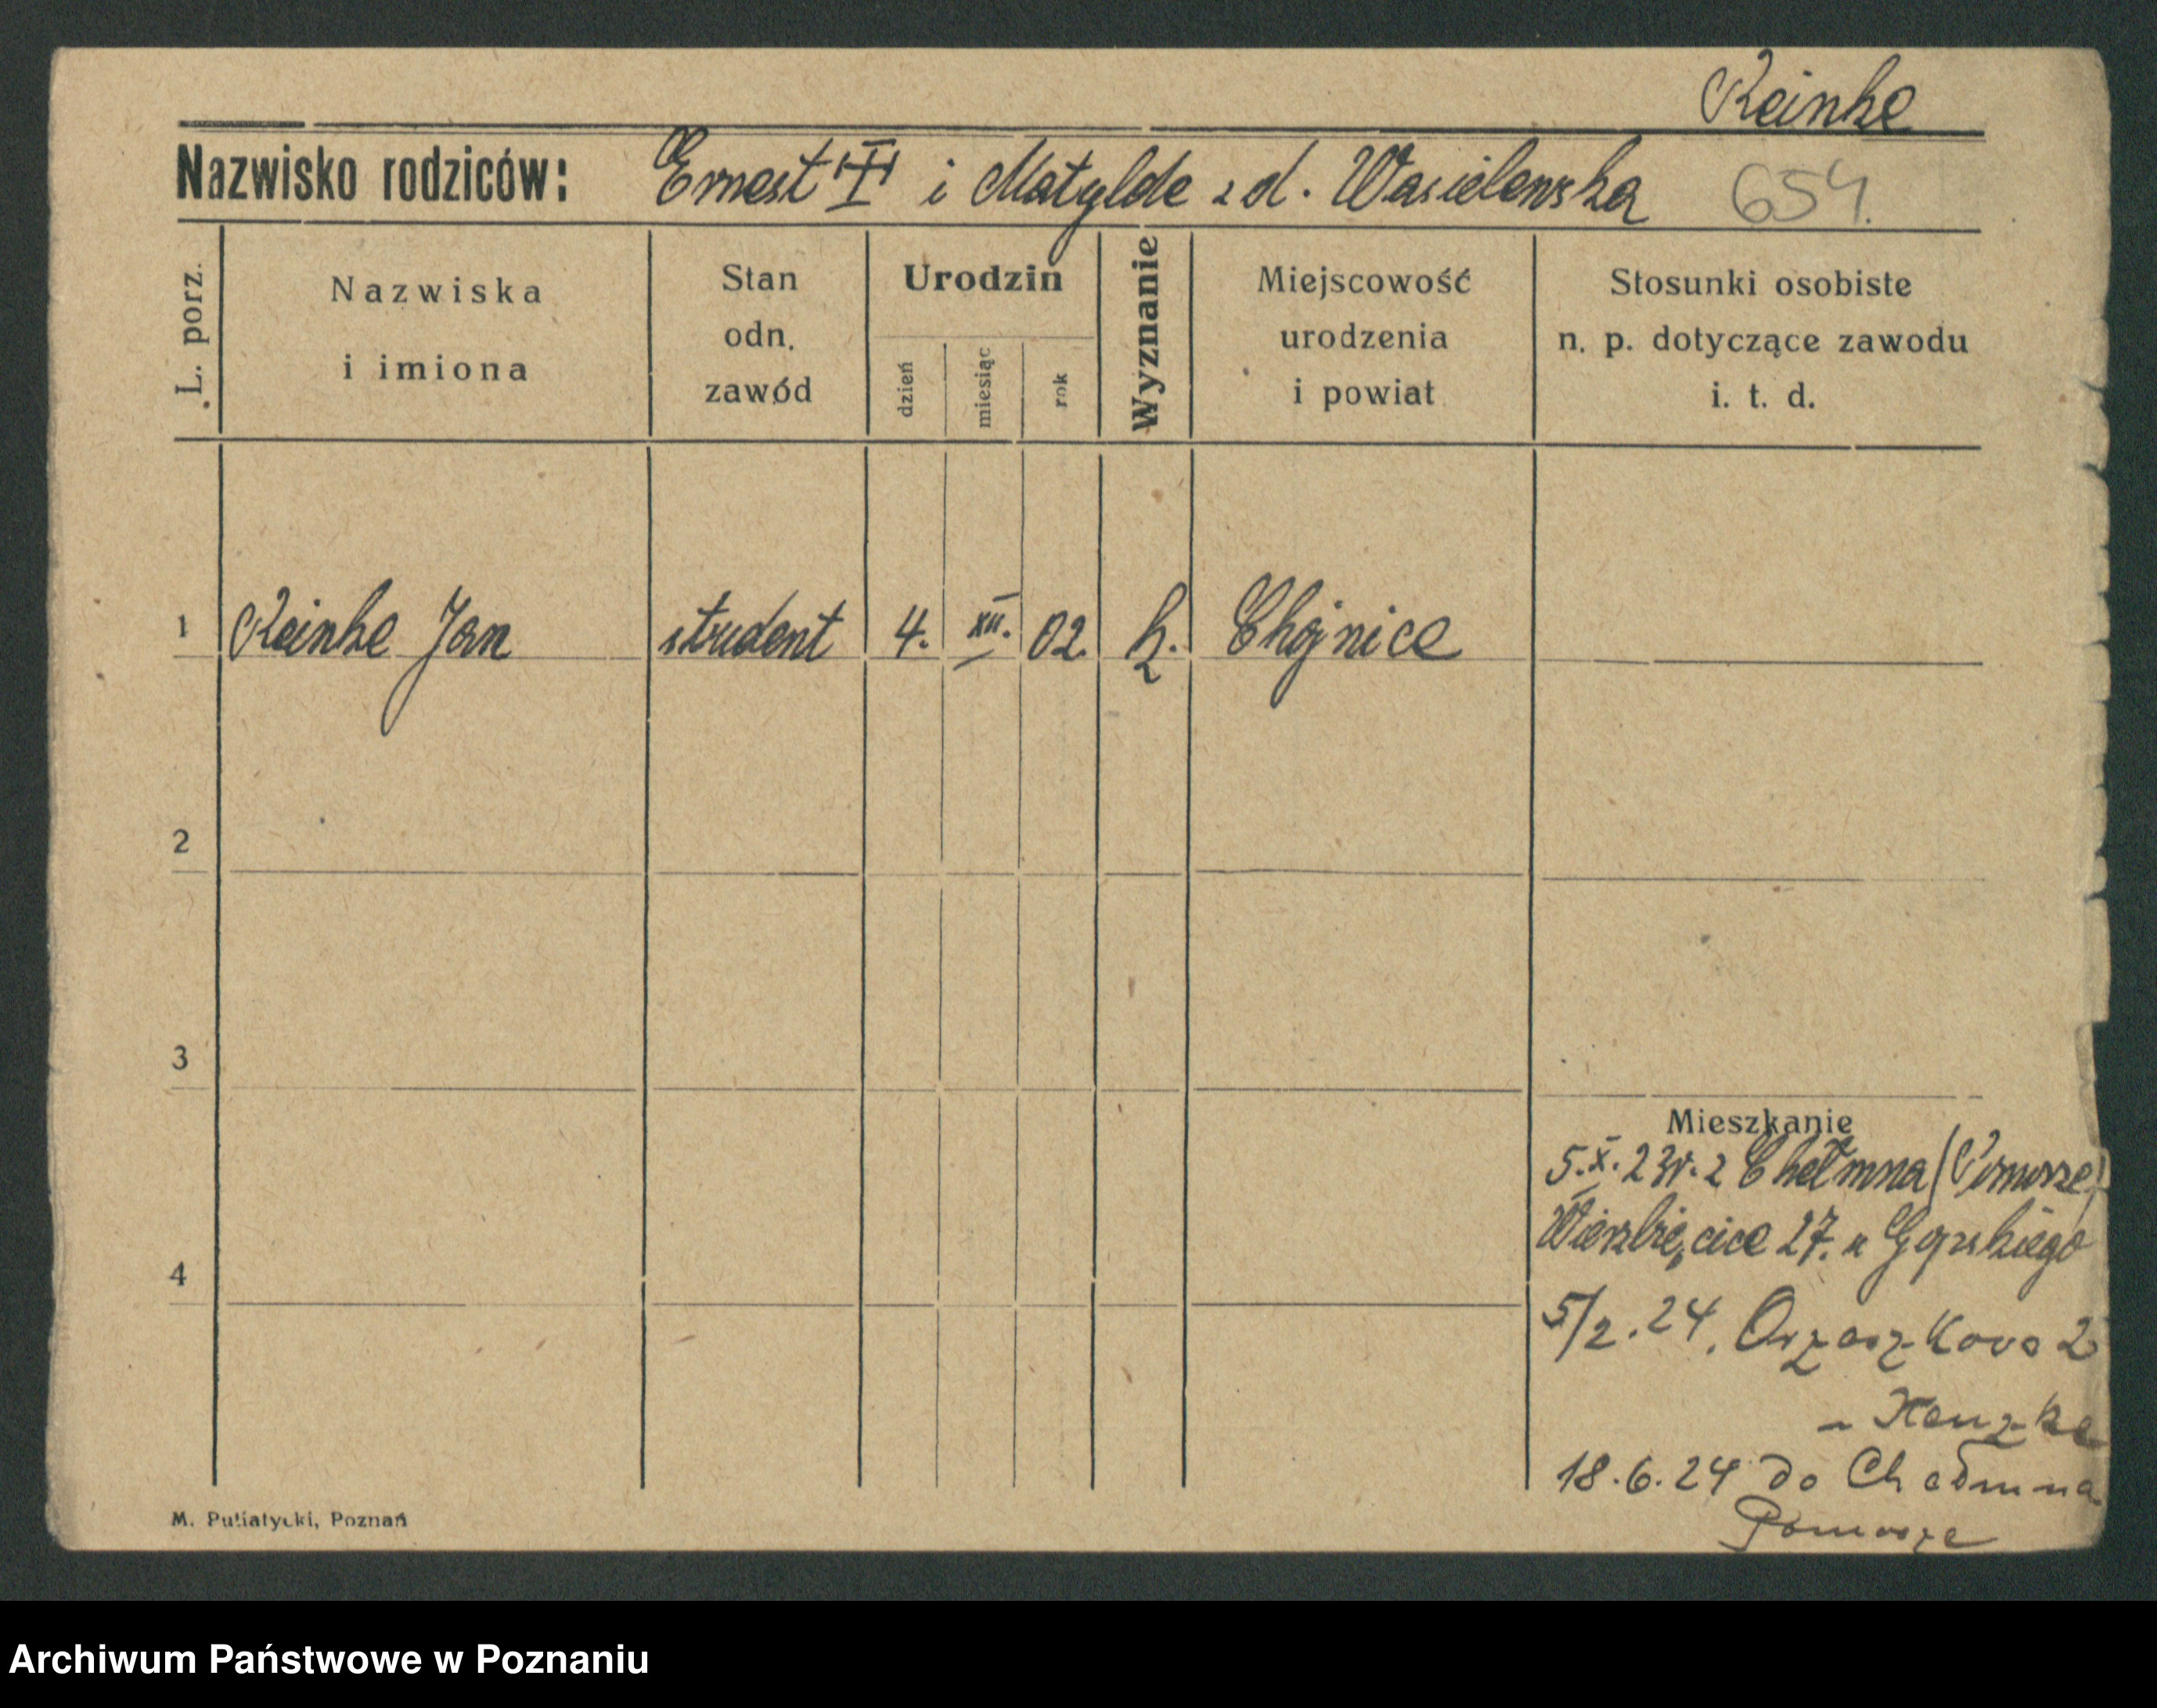 Reinke
Nazwisko rodziców: Ernest i Matylde z d. Wasielewska 654.
L. porz. Nazwiska i imiona Stan odn. zawód Urodzin dzień miesiąc rok Wyznanie Miejscowość urodzenia i powiat Stosunki osobiste n. p. dotyczące zawodu i. t. d.
1 Reinke Jan student 4. XII. 02. k. Chojnice
2
3
Mieszkanie
5.X.23r. z Chełmna (Pomorze)
Wierzbięcice 27. u Górskiego
4
5/2.24. Orzeszkowa 2
18.6.24 do Chełmna
Pomorze
M. Putiatycki, Poznań
Archiwum Państwowe w Poznaniu